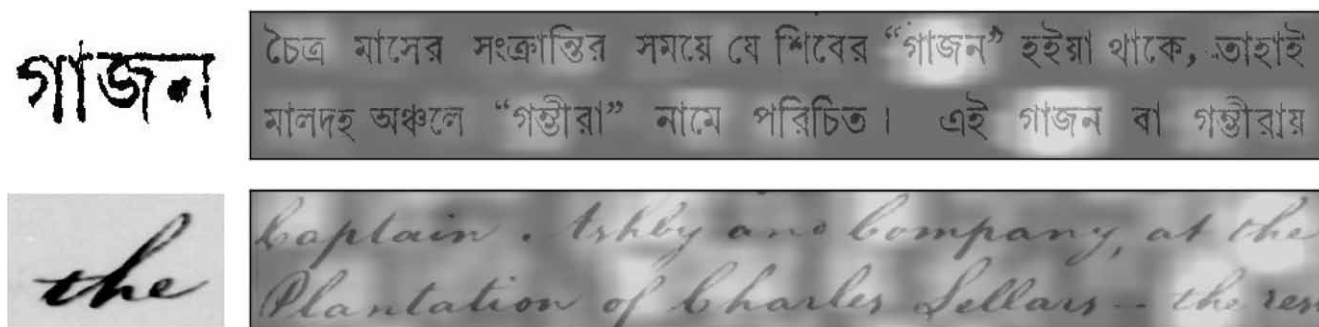 গাজন
চৈত্র মাসের সংক্রান্তির সময়ে যে শিবের “গাজন” হইয়া থাকে, তাহাই
মালদহ অঞ্চলে “গম্ভীরা” নামে পরিচিত। এই গাজন বা গম্ভীরায়
the
Captain. Ashby and Company, at the
Plantation of Charles Sellars -- the res